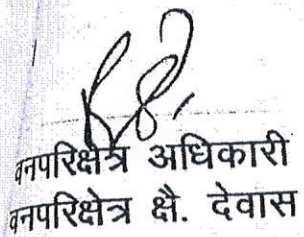 वनपरिक्षेत्र अधिकारी
वनपरिक्षेत्र क्षै. देवास